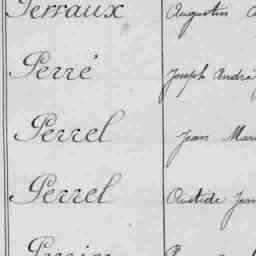 Perraux Augustin
Perré Joseph André
Perrel Jean Mar
Perrel Aristide Jean
Perrin